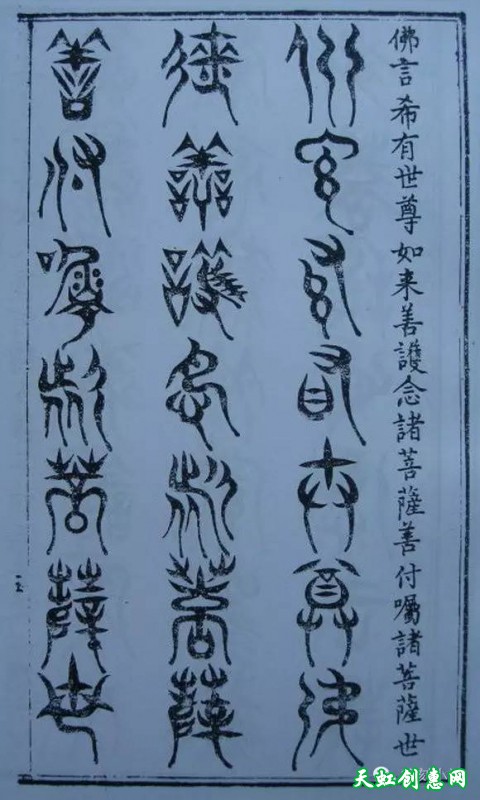 佛言希有世尊如来善護念諸菩薩善付囑諸菩薩世
佛言希有世尊如
来善護念諸菩薩
善付囑諸菩薩世
天虹创惠网